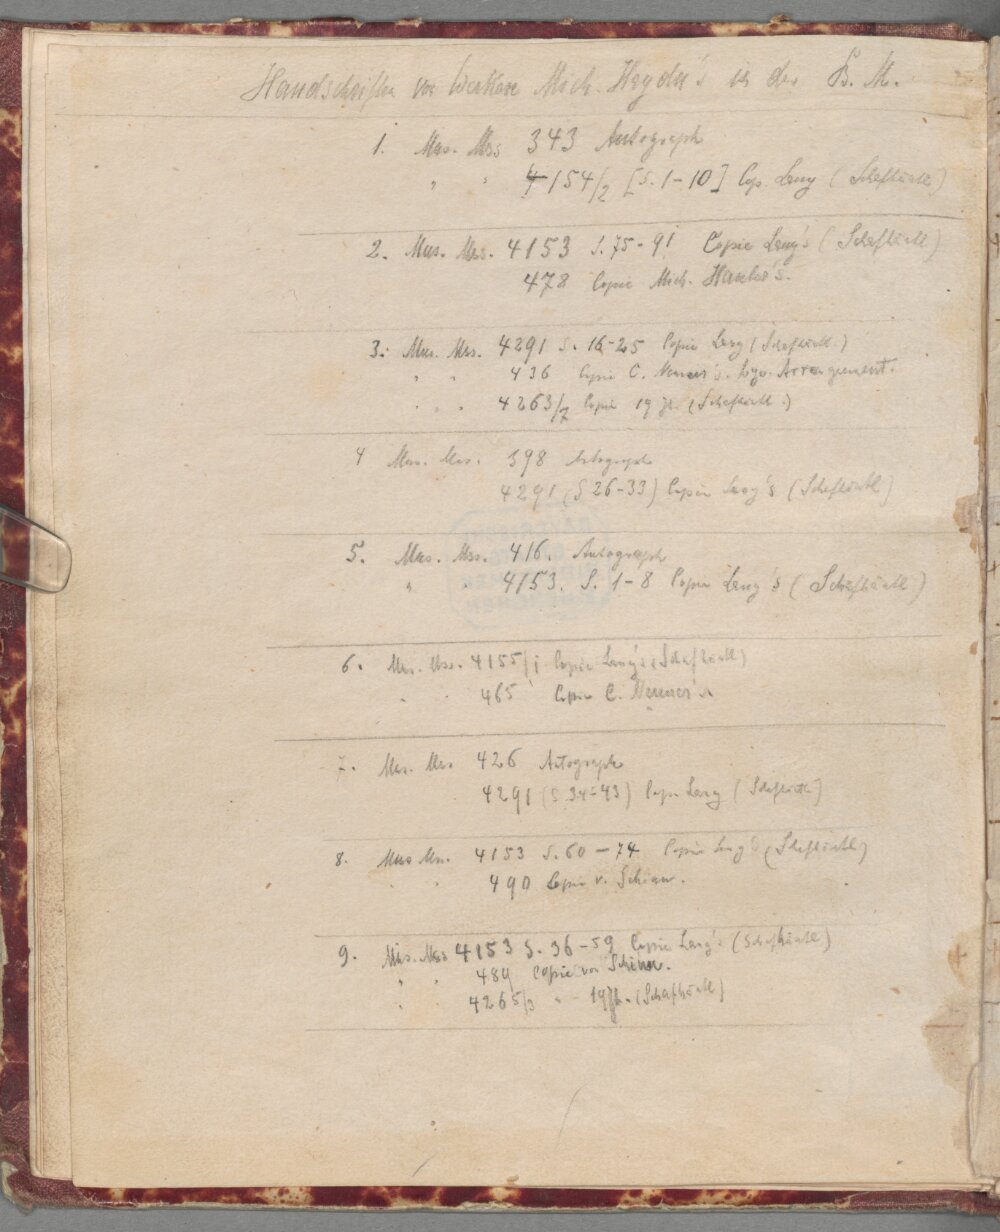 Handschriften von Werken Mich. Haydn's in der B. M.
1. Mus. Mss 343 Autograph
" " 4154/2 [S. 1-10] Cop. Lang (Schafhäutl)
2. Mus. Mss. 4153 S. 75-91 Copie Lang's (Schafhäutl)
478 Copie Mich. Hauber's.
3. Mus. Mss. 4291 S. 16-25 Copie Lang (Schafhäutl.)
" " 436 Copie C. Neuner's. Arrangement.
" " 4263/7 Copie 19 Jh. (Schafhäutl.)
4 Mus. Mss. 398 Autograph
4291 (S 26-33) Copie Lang's (Schafhäutl)
5. Mus. Mss. 416. Autograph
" 4153. S. 1-8 Copie Lang's (Schafhäutl)
6. Mus. Mss. 4155/1 Copie Lang's (Schafhäutl)
" 465 Copie C. Neuner's
7. Mus. Mss 426 Autograph
4291 (S. 34-43) Copie Lang (Schafhäutl)
8. Mus Mss. 4153 S. 60-74 Copie Lang's (Schafhäutl)
" " 490 Copie v. Schinn.
9. Mus. Mss 4153 S. 36-59 Copie Lang's (Schafhäutl)
" " 489 Copie von Schinn.
" 4265/3 " 19 Jh. (Schafhäutl)